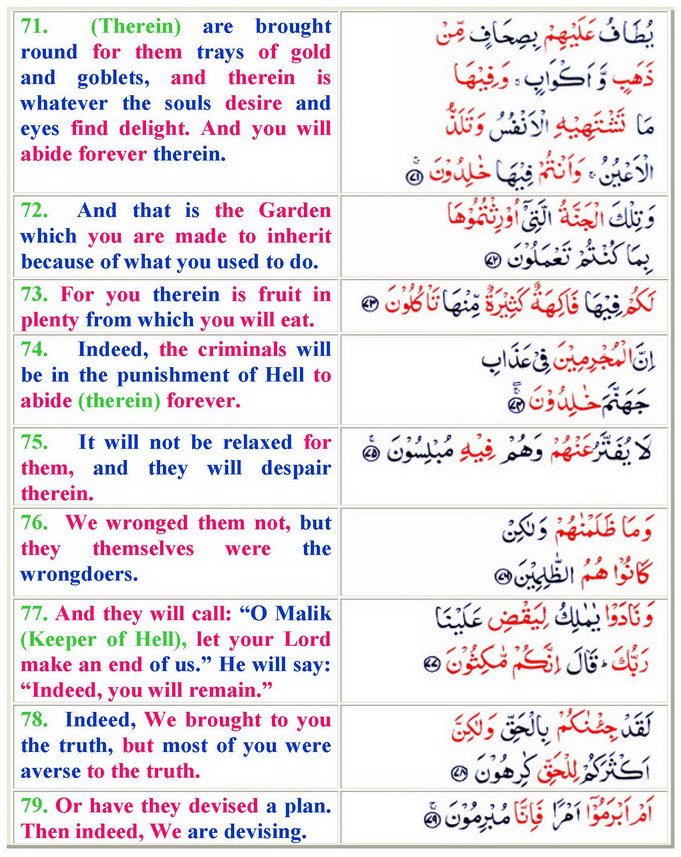 71. (Therein) are brought
round for them trays of gold
and goblets, and therein is
whatever the souls desire and
eyes find delight. And you will
abide forever therein.
يُطَافُ عَلَيْهِمْ بِصِحَافٍ مِّنْ
ذَهَبٍ وَّ اَكْوَابٍ ۚ وَ فِيْهَا
مَا تَشْتَهِيْهِ الْاَنْفُسُ وَ تَلَذُّ
الْاَعْيُنُ ۚ وَ اَنْتُمْ فِيْهَا خٰلِدُوْنَ ۚ ﴿۷۱﴾
72. And that is the Garden
which you are made to inherit
because of what you used to do.
وَ تِلْكَ الْجَنَّةُ الَّتِيْۤ اُوْرِثْتُمُوْهَا
بِمَا كُنْتُمْ تَعْمَلُوْنَ ﴿۷۲﴾
73. For you therein is fruit in
plenty from which you will eat.
لَكُمْ فِيْهَا فَاكِهَةٌ كَثِيْرَةٌ مِّنْهَا تَاْكُلُوْنَ ﴿۷۳﴾
74. Indeed, the criminals will
be in the punishment of Hell to
abide (therein) forever.
اِنَّ الْمُجْرِمِيْنَ فِيْ عَذَابِ
جَهَنَّمَ خٰلِدُوْنَ ۚۖ ﴿۷۴﴾
75. It will not be relaxed for
them, and they will despair
therein.
لَا يُفَتَّرُ عَنْهُمْ وَ هُمْ فِيْهِ مُبْلِسُوْنَ ۚ ﴿۷۵﴾
76. We wronged them not, but
they themselves were the
wrongdoers.
وَ مَا ظَلَمْنٰهُمْ وَ لٰكِنْ
كَانُوْا هُمُ الظّٰلِمِيْنَ ﴿۷۶﴾
77. And they will call: “O Malik
(Keeper of Hell), let your Lord
make an end of us.” He will say:
“Indeed, you will remain.”
وَ نَادَوْا يٰمٰلِكُ لِيَقْضِ عَلَيْنَا
رَبُّكَ ؕ قَالَ اِنَّكُمْ مّٰكِثُوْنَ ﴿۷۷﴾
78. Indeed, We brought to you
the truth, but most of you were
averse to the truth.
لَقَدْ جِئْنٰكُمْ بِالْحَقِّ وَ لٰكِنَّ
اَكْثَرَكُمْ لِلْحَقِّ كٰرِهُوْنَ ﴿۷۸﴾
79. Or have they devised a plan.
Then indeed, We are devising.
اَمْ اَبْرَمُوْۤا اَمْرًا فَاِنَّا مُبْرِمُوْنَ ۚ ﴿۷۹﴾